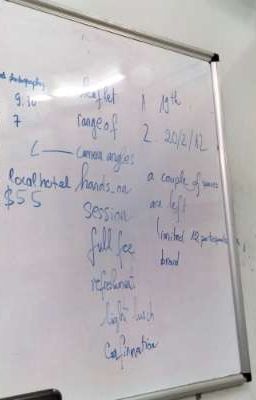 photography
9.30
7
local hotel
$55
leaflet
range of
camera angles
hands-on
session
full fee
refreshment
light lunch
confirmation
1 19th
2. 20/2/12
a couple of
are left
limited 12 participants